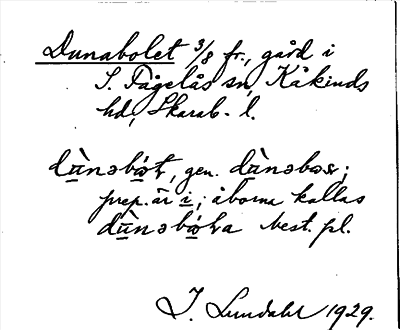 Dunabolet 3/8 fr., gård i
S. Fågelås sn, Kåkinds
hd, Skarab. l.
gen.
prep. är i; åborna kallas
best. pl.
J. Lundahl 1929.